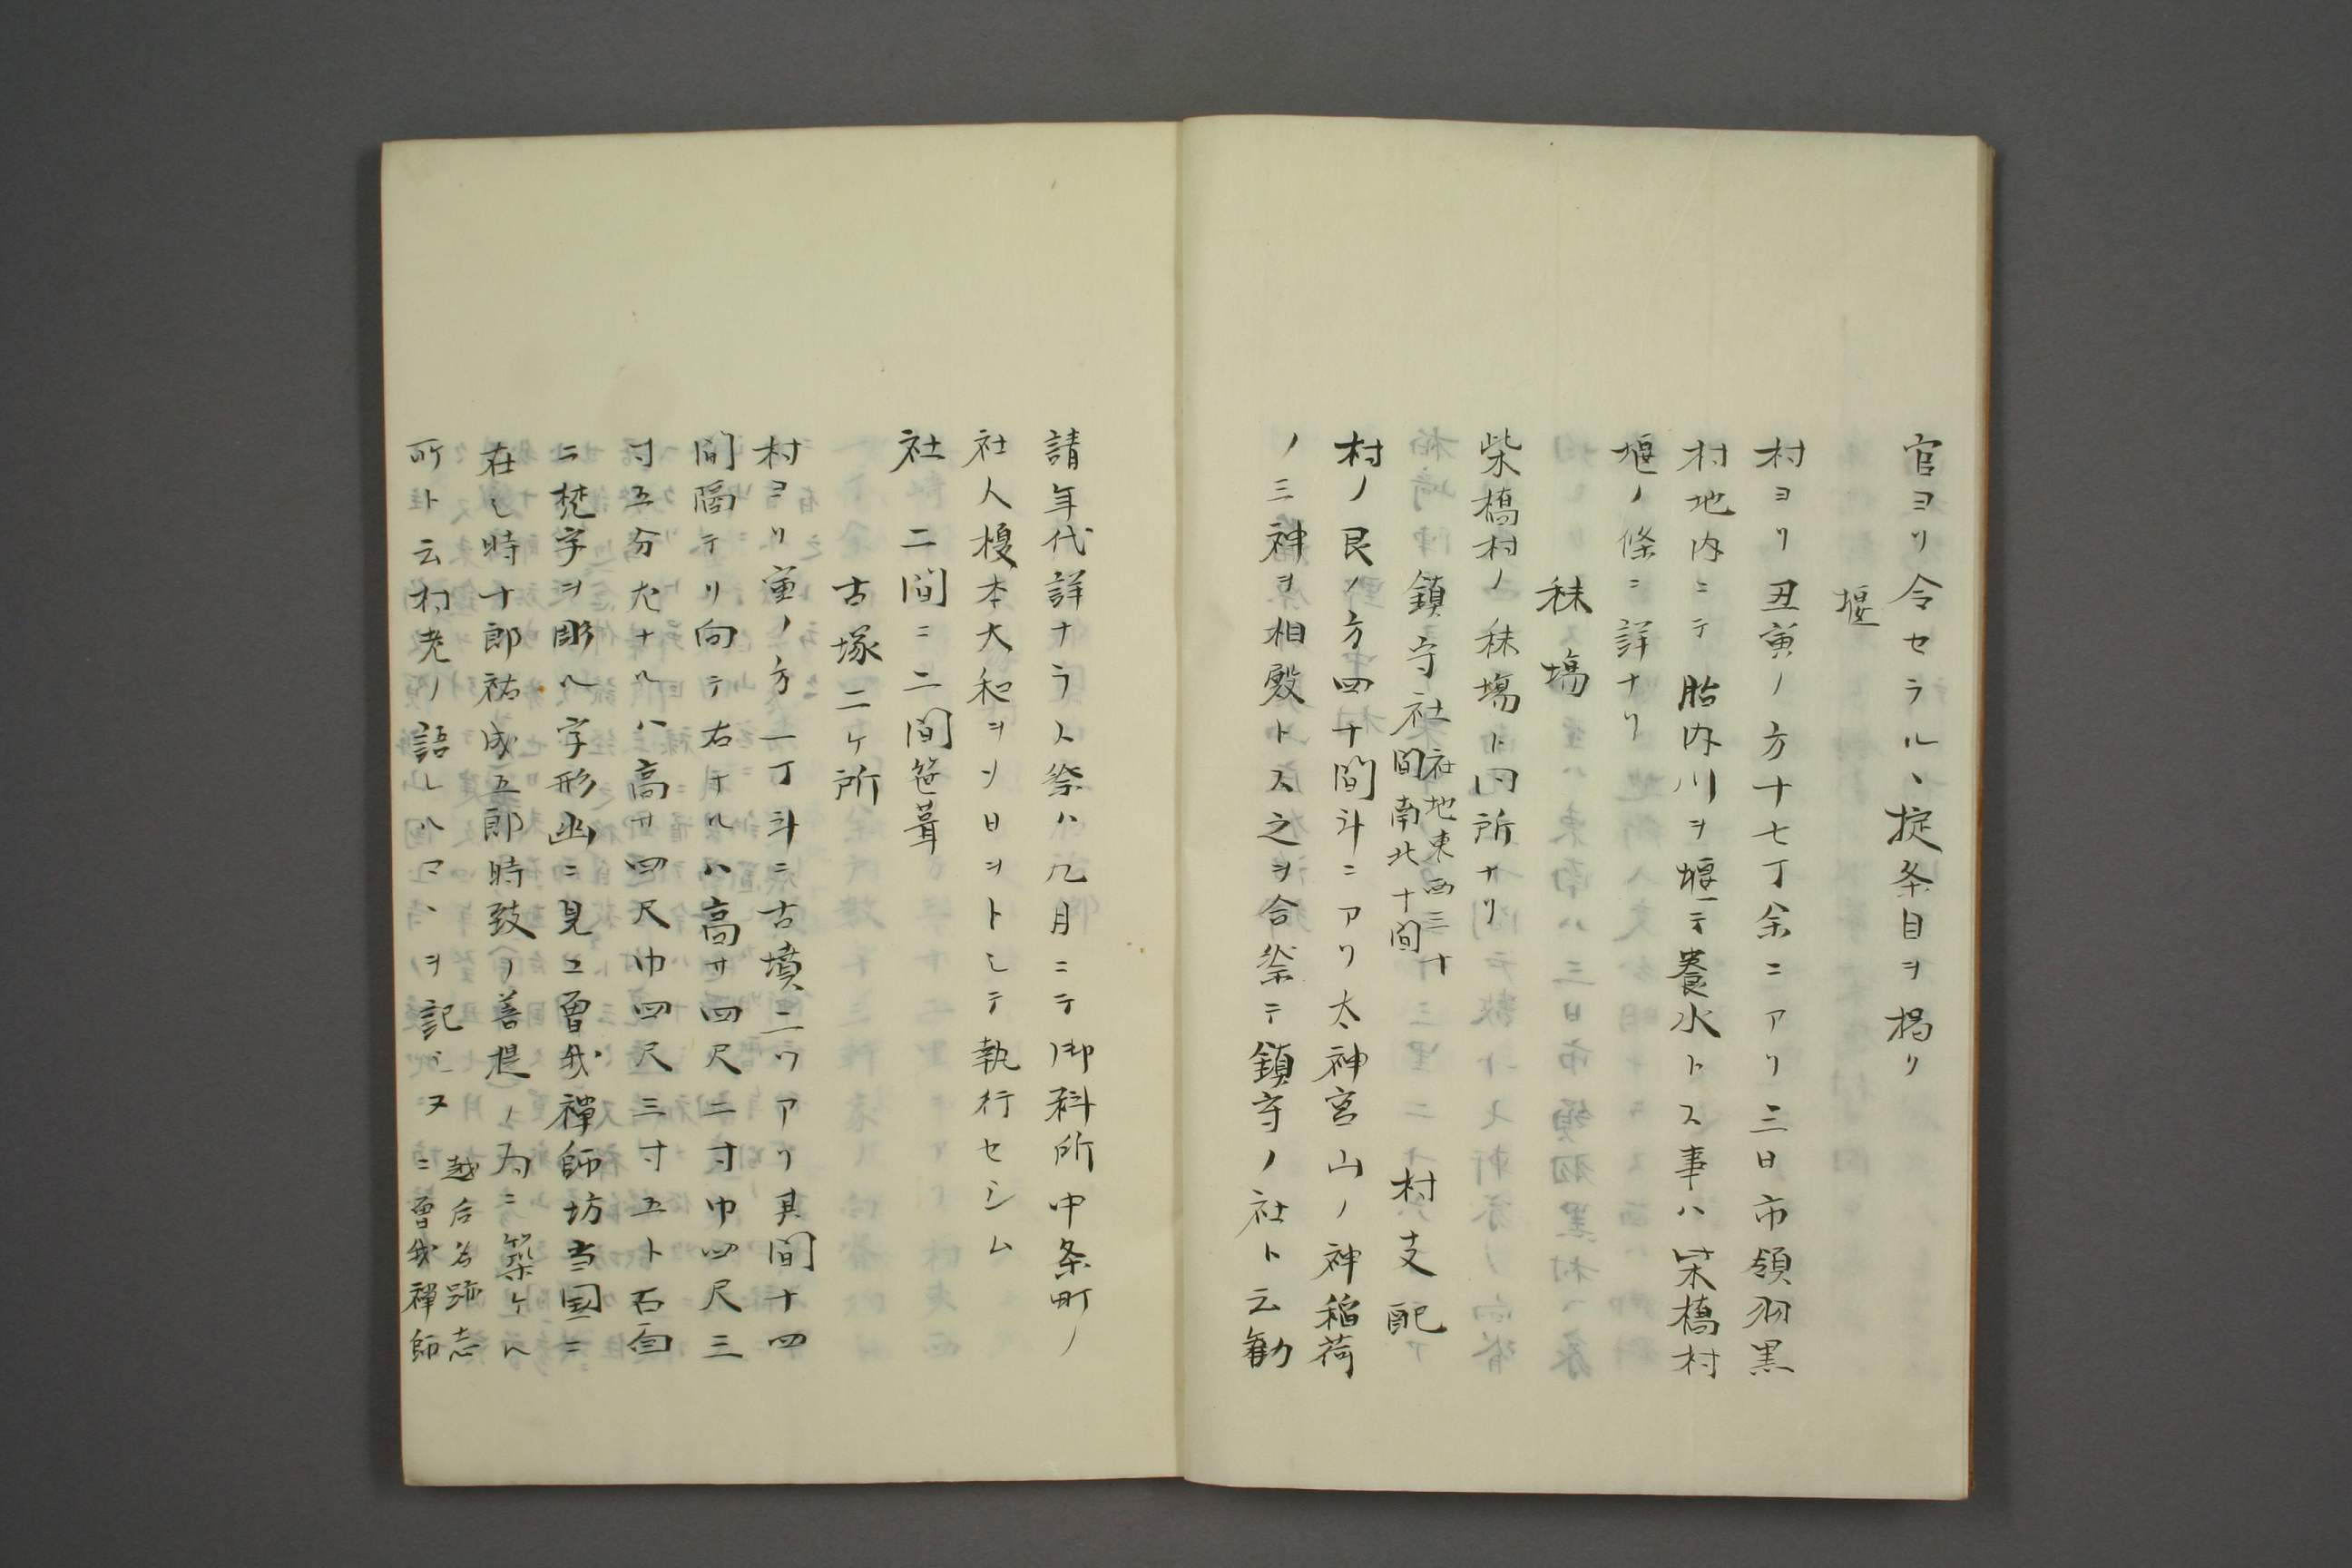 官ヨリ令セラルヽ掟条目ヲ掲リ
堰
村ヨリ丑寅ノ方十七丁余ニアリ三日市領羽黒
村地内ニテ胎内川ヲ堰テ養水トス事ハ柴橋村
堰ノ條ニ詳ナリ
秣場
柴橋村ノ秣場ト同所ナリ
鎮守社 社地東西三十
間南北十間 村支配
村ノ艮ノ方四十間斗ニアリ太神宮山ノ神稲荷
ノ三神ヲ相殿トス之ヲ合祭テ鎮守ノ社ト云勧
請年代詳ナラス祭ハ九月ニテ御料所中条町ノ
社人榎本大和ヲシ日ヲトシテ執行セシム
社 二間ニ二間笹葺
古塚二ヶ所
村ヨリ寅ノ方一丁斗ニ古墳二ツアリ其間十四
間隔テリ向テ右ナルハ高サ四尺二寸巾四尺三
寸五分左ナルハ高サ四尺巾四尺三寸五ト石面
ニ梵字ヲ彫ル字形幽ニ見ユ曽我禅師坊当国ニ
在シ時十郎祐成五郎時致ノ善提ノ為ニ築ケル
所ト云村老ノ語レルマヽヲ記シヌ 越后名跡志
ニ曽我禅師